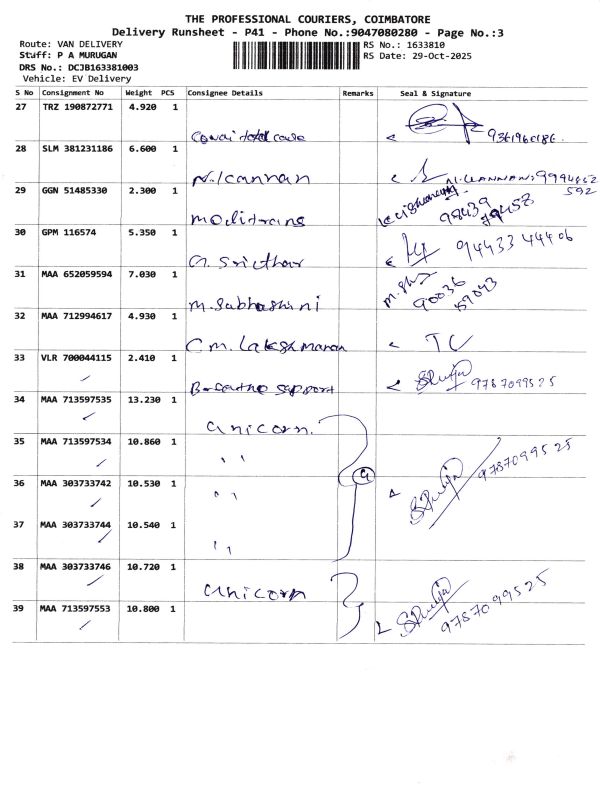 THE PROFESSIONAL COURIERS, COIMBATORE
Delivery Runsheet - P41 - Phone No.:9047080280 - Page No.:3
Route: VAN DELIVERY
Stuff: P A MURUGAN
DRS No.: DCJB163381003
Vehicle: EV Delivery
RS No.: 1633810
RS Date: 29-Oct-2025
S No Consignment No Weight PCS Consignee Details Remarks Seal & Signature
27 TRZ 190872771 4.920 1
28 SLM 381231186 6.600 1
N. Kannan N. KANNAN: 9994662592
29 GGN 51485330 2.300 1
Meditrans 98439 79457
30 GPM 116574 5.350 1
G. Sridhar 94433 44406
31 MAA 652059594 7.030 1
M. Subhashini 90036 57043
32 MAA 712994617 4.930 1
C M. Lakshmanan
33 VLR 700044115 2.410 1
support 9787099525
34 MAA 713597535 13.230 1
Unicorn.
35 MAA 713597534 10.860 1
" 9787099525
36 MAA 303733742 10.530 1
"
37 MAA 303733744 10.540 1
"
38 MAA 303733746 10.720 1
Unicorn
39 MAA 713597553 10.800 1
9787099525
3